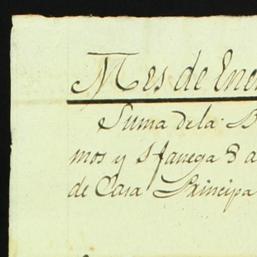 Mes de Ene
Suma de la D
mos y 1 fanega 8 a
de Casa Principa